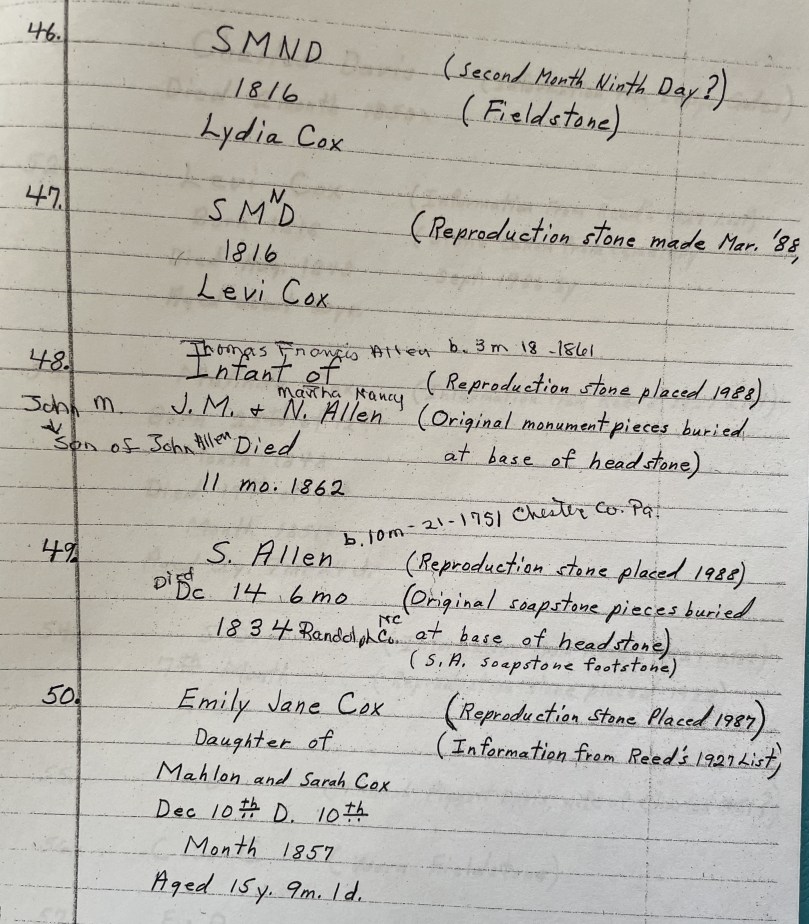 46.
SMND (Second Month Ninth Day?)
1816 (Fieldstone)
Lydia Cox
47.
SMᴺD (Reproduction stone made Mar. '88,
1816
Levi Cox
Thomas Francis Allen b. 3m 18 -1861
48. Infant of (Reproduction stone placed 1988)
Martha Nancy
John M. J. M. & N. Allen (Original monument pieces buried
Son of John Allen Died at base of headstone)
11 mo. 1862
b. 10m - 21-1751 Chester Co. Pa.
49. S. Allen (Reproduction stone placed 1988)
Died
Dc 14 6 mo (Original soapstone pieces buried
1834 Randolph Co. NC at base of headstone)
(S.A. soapstone footstone)
50. Emily Jane Cox (Reproduction Stone Placed 1987)
Daughter of (Information from Reed's 1927 List)
Mahlon and Sarah Cox
Dec 10th D. 10th
Month 1857
Aged 15y. 9m. 1d.